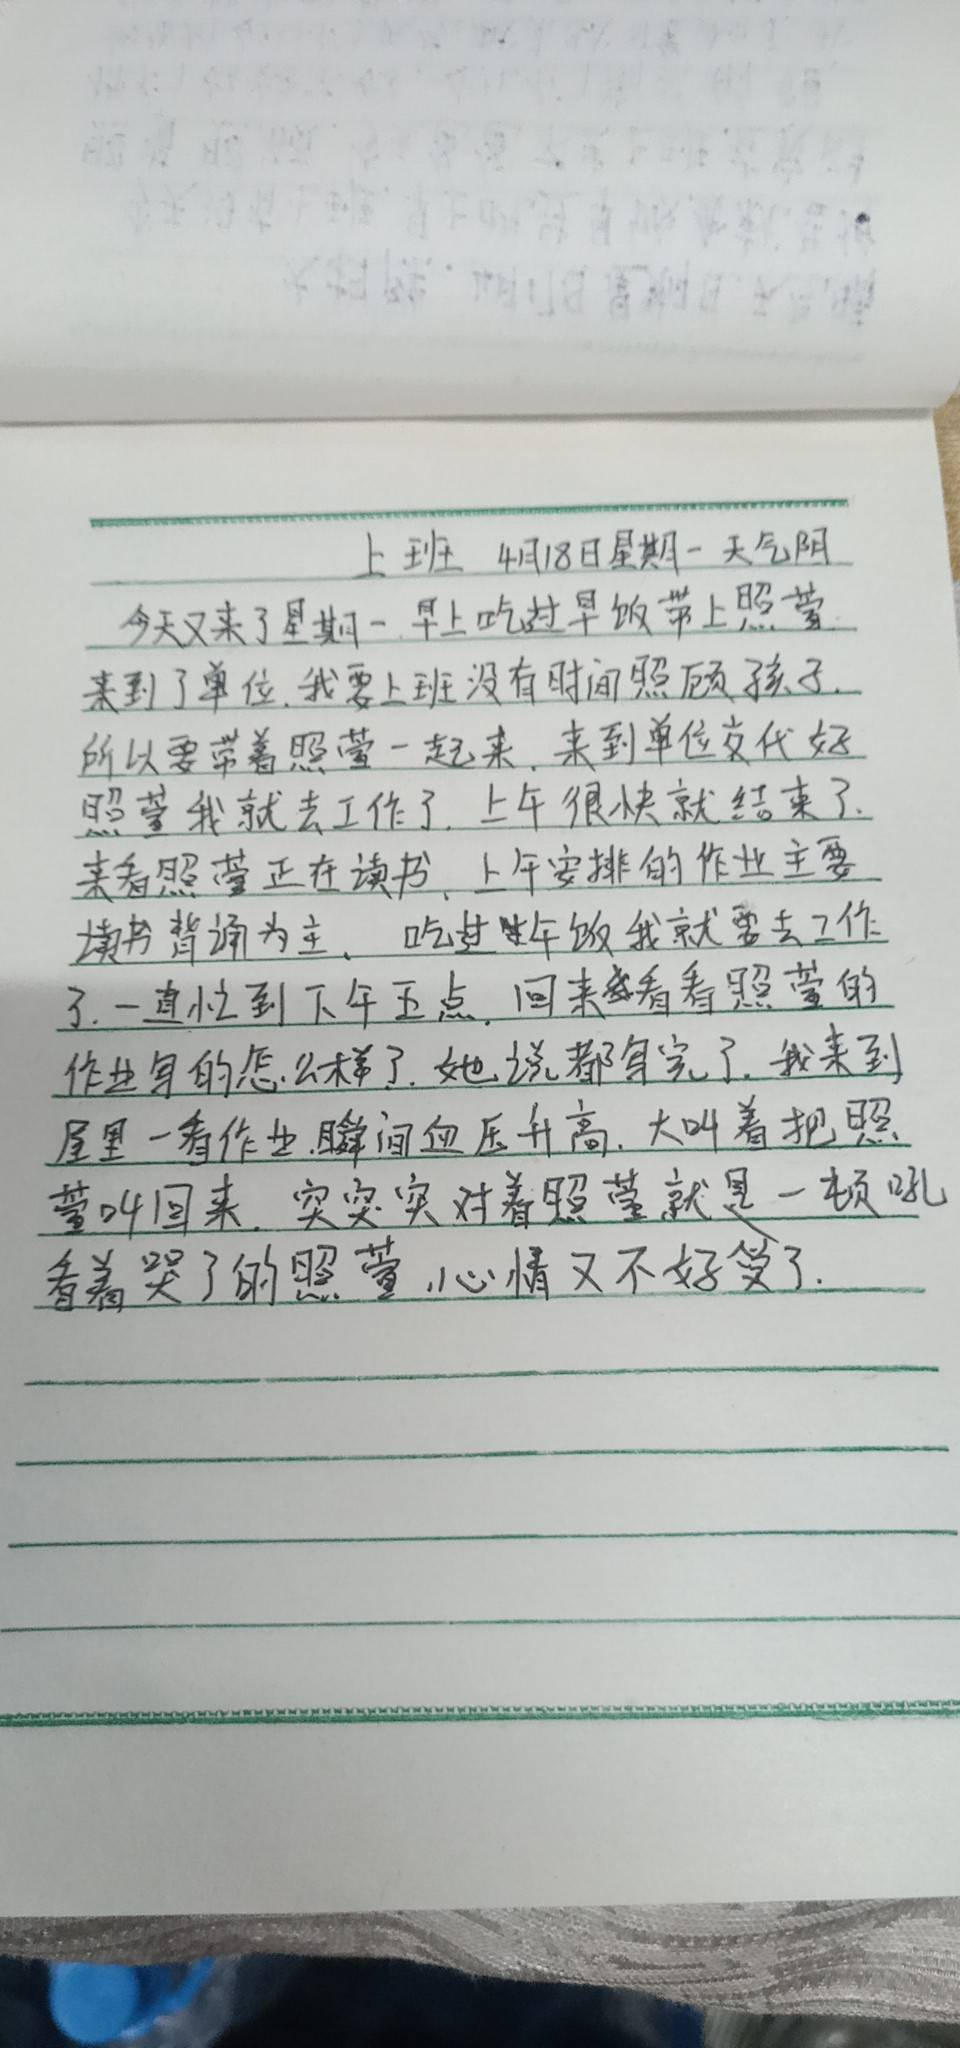 上班 4月18日星期一 天气阴
今天又来了星期一.早上吃过早饭带上照萱.
来到了单位.我要上班没有时间照顾孩子.
所以要带着照萱一起来.来到单位交代好
照萱我就去工作了.上午很快就结束了.
来看照萱正在读书.上午安排的作业主要
读书背诵为主. 吃过午饭我就要去工作
了.一直忙到下午五点.回来看看照萱的
作业写的怎么样了.她说都写完了.我来到
屋里一看作业.瞬间血压升高.大叫着把照
萱叫回来.突突突对着照萱就是一顿吼
看着哭了的照萱.心情又不好受了.